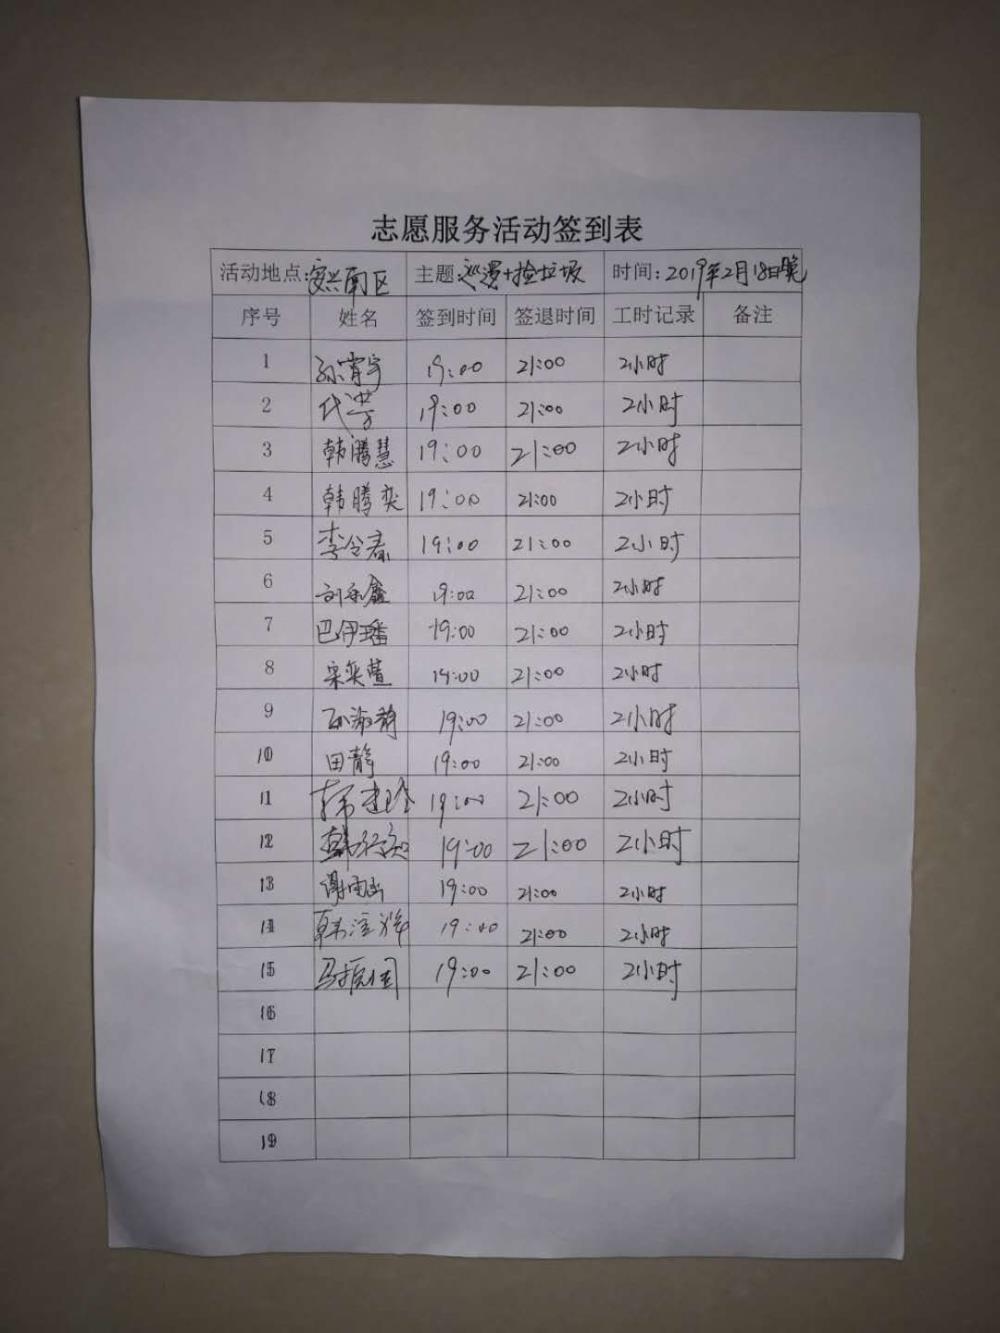 志愿服务活动签到表
活动地点:安兴南区 主题:巡逻+捡垃圾 时间:2019年2月18日晚
序号 姓名 签到时间 签退时间 工时记录 备注
1 孙霄宇 19:00 21:00 2小时
2 代芳 19:00 21:00 2小时
3 韩腾慧 19:00 21:00 2小时
4 韩腾奕 19:00 21:00 2小时
5 李令春 19:00 21:00 2小时
6 19:00 21:00 2小时
7 巴伊璠 19:00 21:00 2小时
8 宋奕萱 19:00 21:00 2小时
9 孙淑静 19:00 21:00 2小时
10 田静 19:00 21:00 2小时
11 19:00 21:00 2小时
12 19:00 21:00 2小时
13 19:00 21:00 2小时
14 19:00 21:00 2小时
15 马振国 19:00 21:00 2小时
16
17
18
19